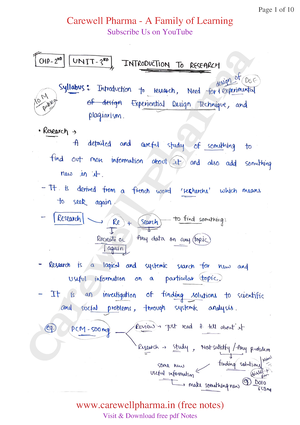 Page 1 of 10
Carewell Pharma - A Family of Learning
Subscribe Us on YouTube
CHP-2nd UNIT-3rd INTRODUCTION TO RESEARCH
design of
Syllabus: Introduction to research, Need for experimental
of design Experiential Design Technique, and
plagiarism.
• Research →
A detailed and careful study of something to
find out more information about it and also add something
new in it.
- It is derived from a french word 'recherche' which means
to seek again
- Research → Re + Search → to find something
again any data on any topic
- Research is a logical and systemic search for new and
useful information on a particular topic.
- It is an investigation of finding solutions to scientific
and social problems, through systemic analysis.
eg PCM-500mg Review → just read & tell about it
Research → Study, Most satisfy / any problem
some new finding solutions
useful information
make something new eg
650mg
Carewell Pharma
www.carewellpharma.in (free notes)
Visit & Download free pdf Notes